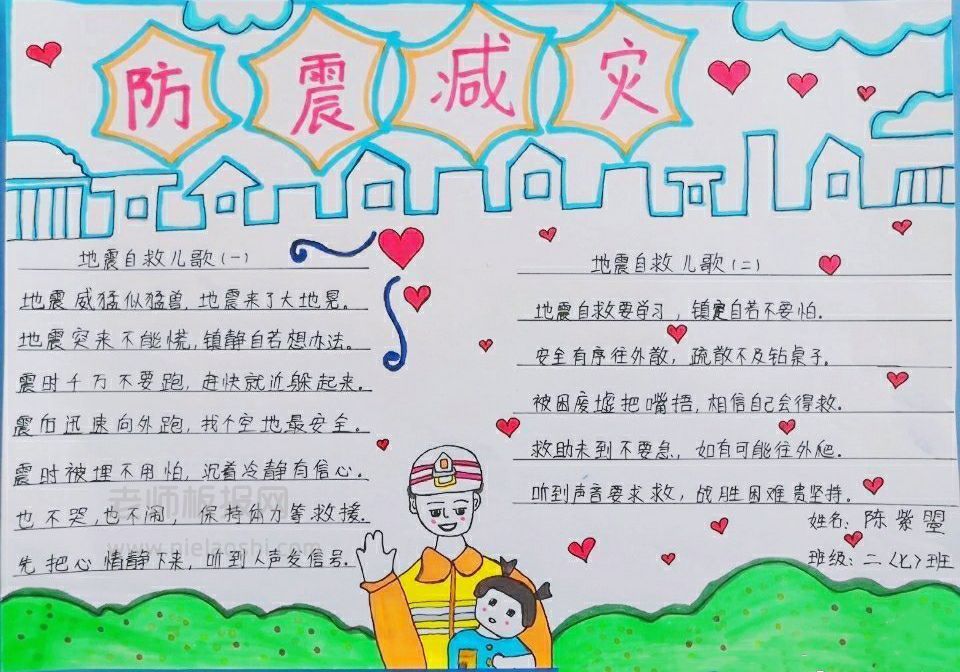 防震减灾
地震自救儿歌(一)
地震威猛似猛兽,地震来了大地晃。
地震突来不能慌,镇静自若想办法。
震时千万不要跑,赶快就近躲起来。
震后迅速向外跑,找个空地最安全。
震时被埋不用怕,沉着冷静有信心。
也不哭,也不闹,保持体力等救援.
先把心情静下来,听到人声发信号.
地震自救儿歌(二)
地震自救要学习,镇定自若不要怕.
安全有序往外散,疏散不及钻桌子.
被困废墟把嘴捂,相信自己会得救.
救助未到不要急,如有可能往外爬.
听到声音要求救,战胜困难贵坚持.
姓名:陈紫曌
班级:二〈七〉班
老师板报网
www.pielaoshi.com